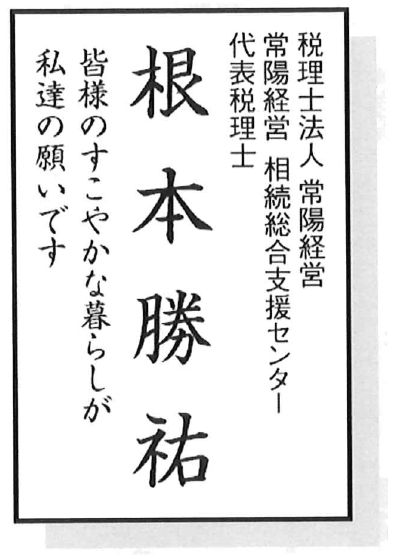 税理士法人 常陽経営
常陽経営 相続総合支援センター
代表税理士
根本勝祐
皆様のすこやかな暮らしが
私達の願いです